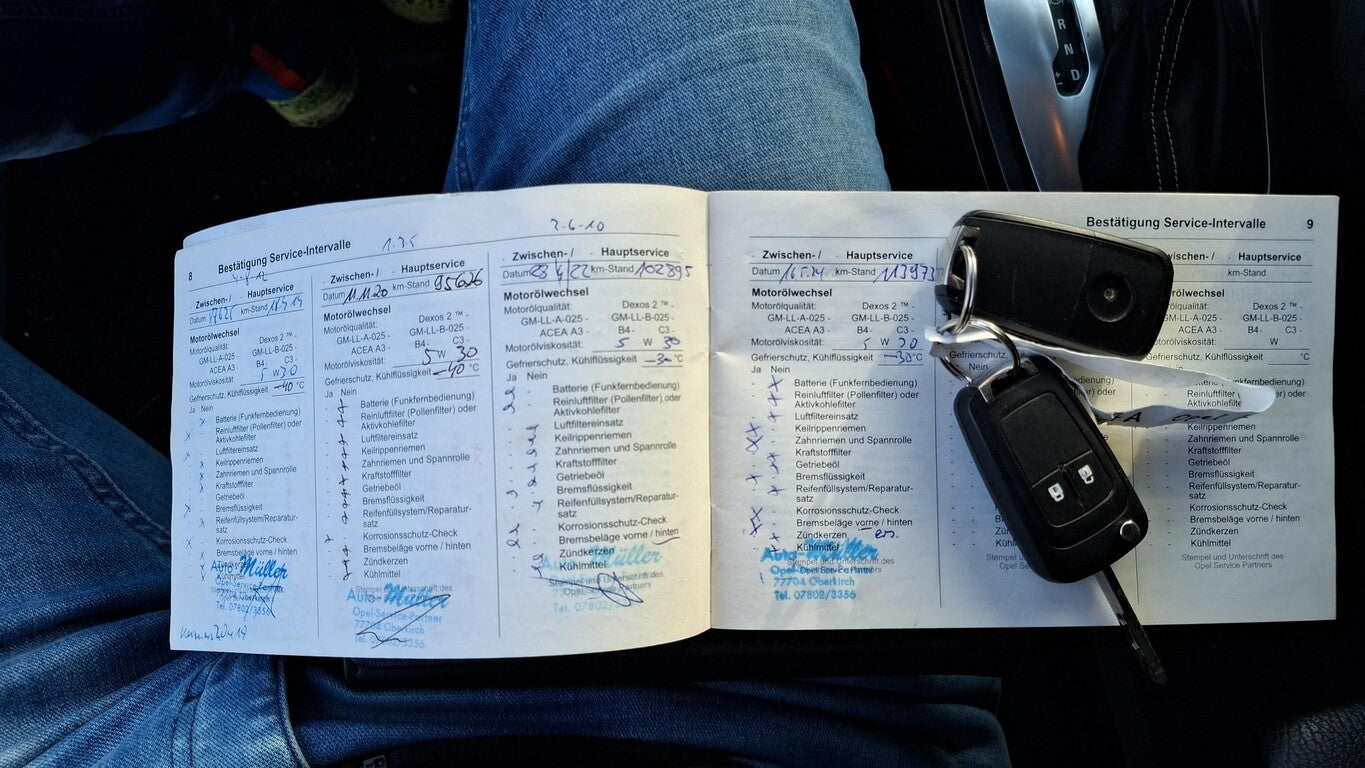 R
N
D
8 Bestätigung Service-Intervalle
2-6-10
Zwischen-/ · Hauptservice
Datum km-Stand
Motorölwechsel
Motorölqualität: Dexos 2 ™ -
GM-LL-A-025 - GM-LL-B-025 -
ACEA A3 - B4 - C3 -
Motorölviskosität: 5 W 30
Gefrierschutz, Kühlflüssigkeit -40 °C
Ja Nein
Batterie (Funkfernbedienung)
Reinluftfilter (Pollenfilter) oder
Aktivkohlefilter
Luftfiltereinsatz
Keilrippenriemen
Zahnriemen und Spannrolle
Kraftstofffilter
Getriebeöl
Bremsflüssigkeit
Reifenfüllsystem/Reparatur-
satz
Korrosionsschutz-Check
Bremsbeläge vorne / hinten
Zündkerzen
Kühlmittel
Auto-Müller
Opel-Service-Partner
Tel. 07802/3356
Zwischen-/ · Hauptservice
Datum 11.11.20 km-Stand 95626
Motorölwechsel
Motorölqualität: Dexos 2 ™ -
GM-LL-A-025 - GM-LL-B-025 -
ACEA A3 - B4 - C3 -
Motorölviskosität: 5 W 30
Gefrierschutz, Kühlflüssigkeit -40 °C
Ja Nein
Batterie (Funkfernbedienung)
Reinluftfilter (Pollenfilter) oder
Aktivkohlefilter
Luftfiltereinsatz
Keilrippenriemen
Zahnriemen und Spannrolle
Kraftstofffilter
Getriebeöl
Bremsflüssigkeit
Reifenfüllsystem/Reparatur-
satz
Korrosionsschutz-Check
Bremsbeläge vorne / hinten
Zündkerzen
Kühlmittel
Auto-Müller
Opel-Service-Partner
77704 Oberkirch
Zwischen-/ · Hauptservice
Datum km-Stand 102895
Motorölwechsel
Motorölqualität: Dexos 2 ™ -
GM-LL-A-025 - GM-LL-B-025 -
ACEA A3 - B4 - C3 -
Motorölviskosität: 5 W 30
Gefrierschutz, Kühlflüssigkeit -30 °C
Ja Nein
Batterie (Funkfernbedienung)
Reinluftfilter (Pollenfilter) oder
Aktivkohlefilter
Luftfiltereinsatz
Keilrippenriemen
Zahnriemen und Spannrolle
Kraftstofffilter
Getriebeöl
Bremsflüssigkeit
Reifenfüllsystem/Reparatur-
satz
Korrosionsschutz-Check
Bremsbeläge vorne / hinten
Zündkerzen
Kühlmittel
Müller
Stempel und Unterschrift des
Tel. 07802/3356
Bestätigung Service-Intervalle 9
Zwischen-/ · Hauptservice
Datum km-Stand
Motorölwechsel
Motorölqualität: Dexos 2 ™ -
GM-LL-A-025 - GM-LL-B-025 -
ACEA A3 - B4 - C3 -
Motorölviskosität: 5 W 30
Gefrierschutz, Kühlflüssigkeit -30 °C
Ja Nein
Batterie (Funkfernbedienung)
Reinluftfilter (Pollenfilter) oder
Aktivkohlefilter
Luftfiltereinsatz
Keilrippenriemen
Zahnriemen und Spannrolle
Kraftstofffilter
Getriebeöl
Bremsflüssigkeit
Reifenfüllsystem/Reparatur-
satz
Korrosionsschutz-Check
Bremsbeläge vorne / hinten
Zündkerzen
Kühlmittel
Auto-Müller
Opel-Service Partner
77704 Oberkirch
Tel. 07802/3356
Gefrierschutz,
Nein
Hauptservice
km-Stand
Dexos 2 ™ -
GM-LL-B-025 -
B4 - C3 -
W
°C
(Funkfernbedienung)
(Pollenfilter) oder
Keilrippenriemen
Zahnriemen und Spannrolle
Kraftstofffilter
Getriebeöl
Bremsflüssigkeit
Reifenfüllsystem/Reparatur-
satz
Korrosionsschutz-Check
Bremsbeläge vorne / hinten
Zündkerzen
Kühlmittel
Stempel und Unterschrift des
Opel Service Partners